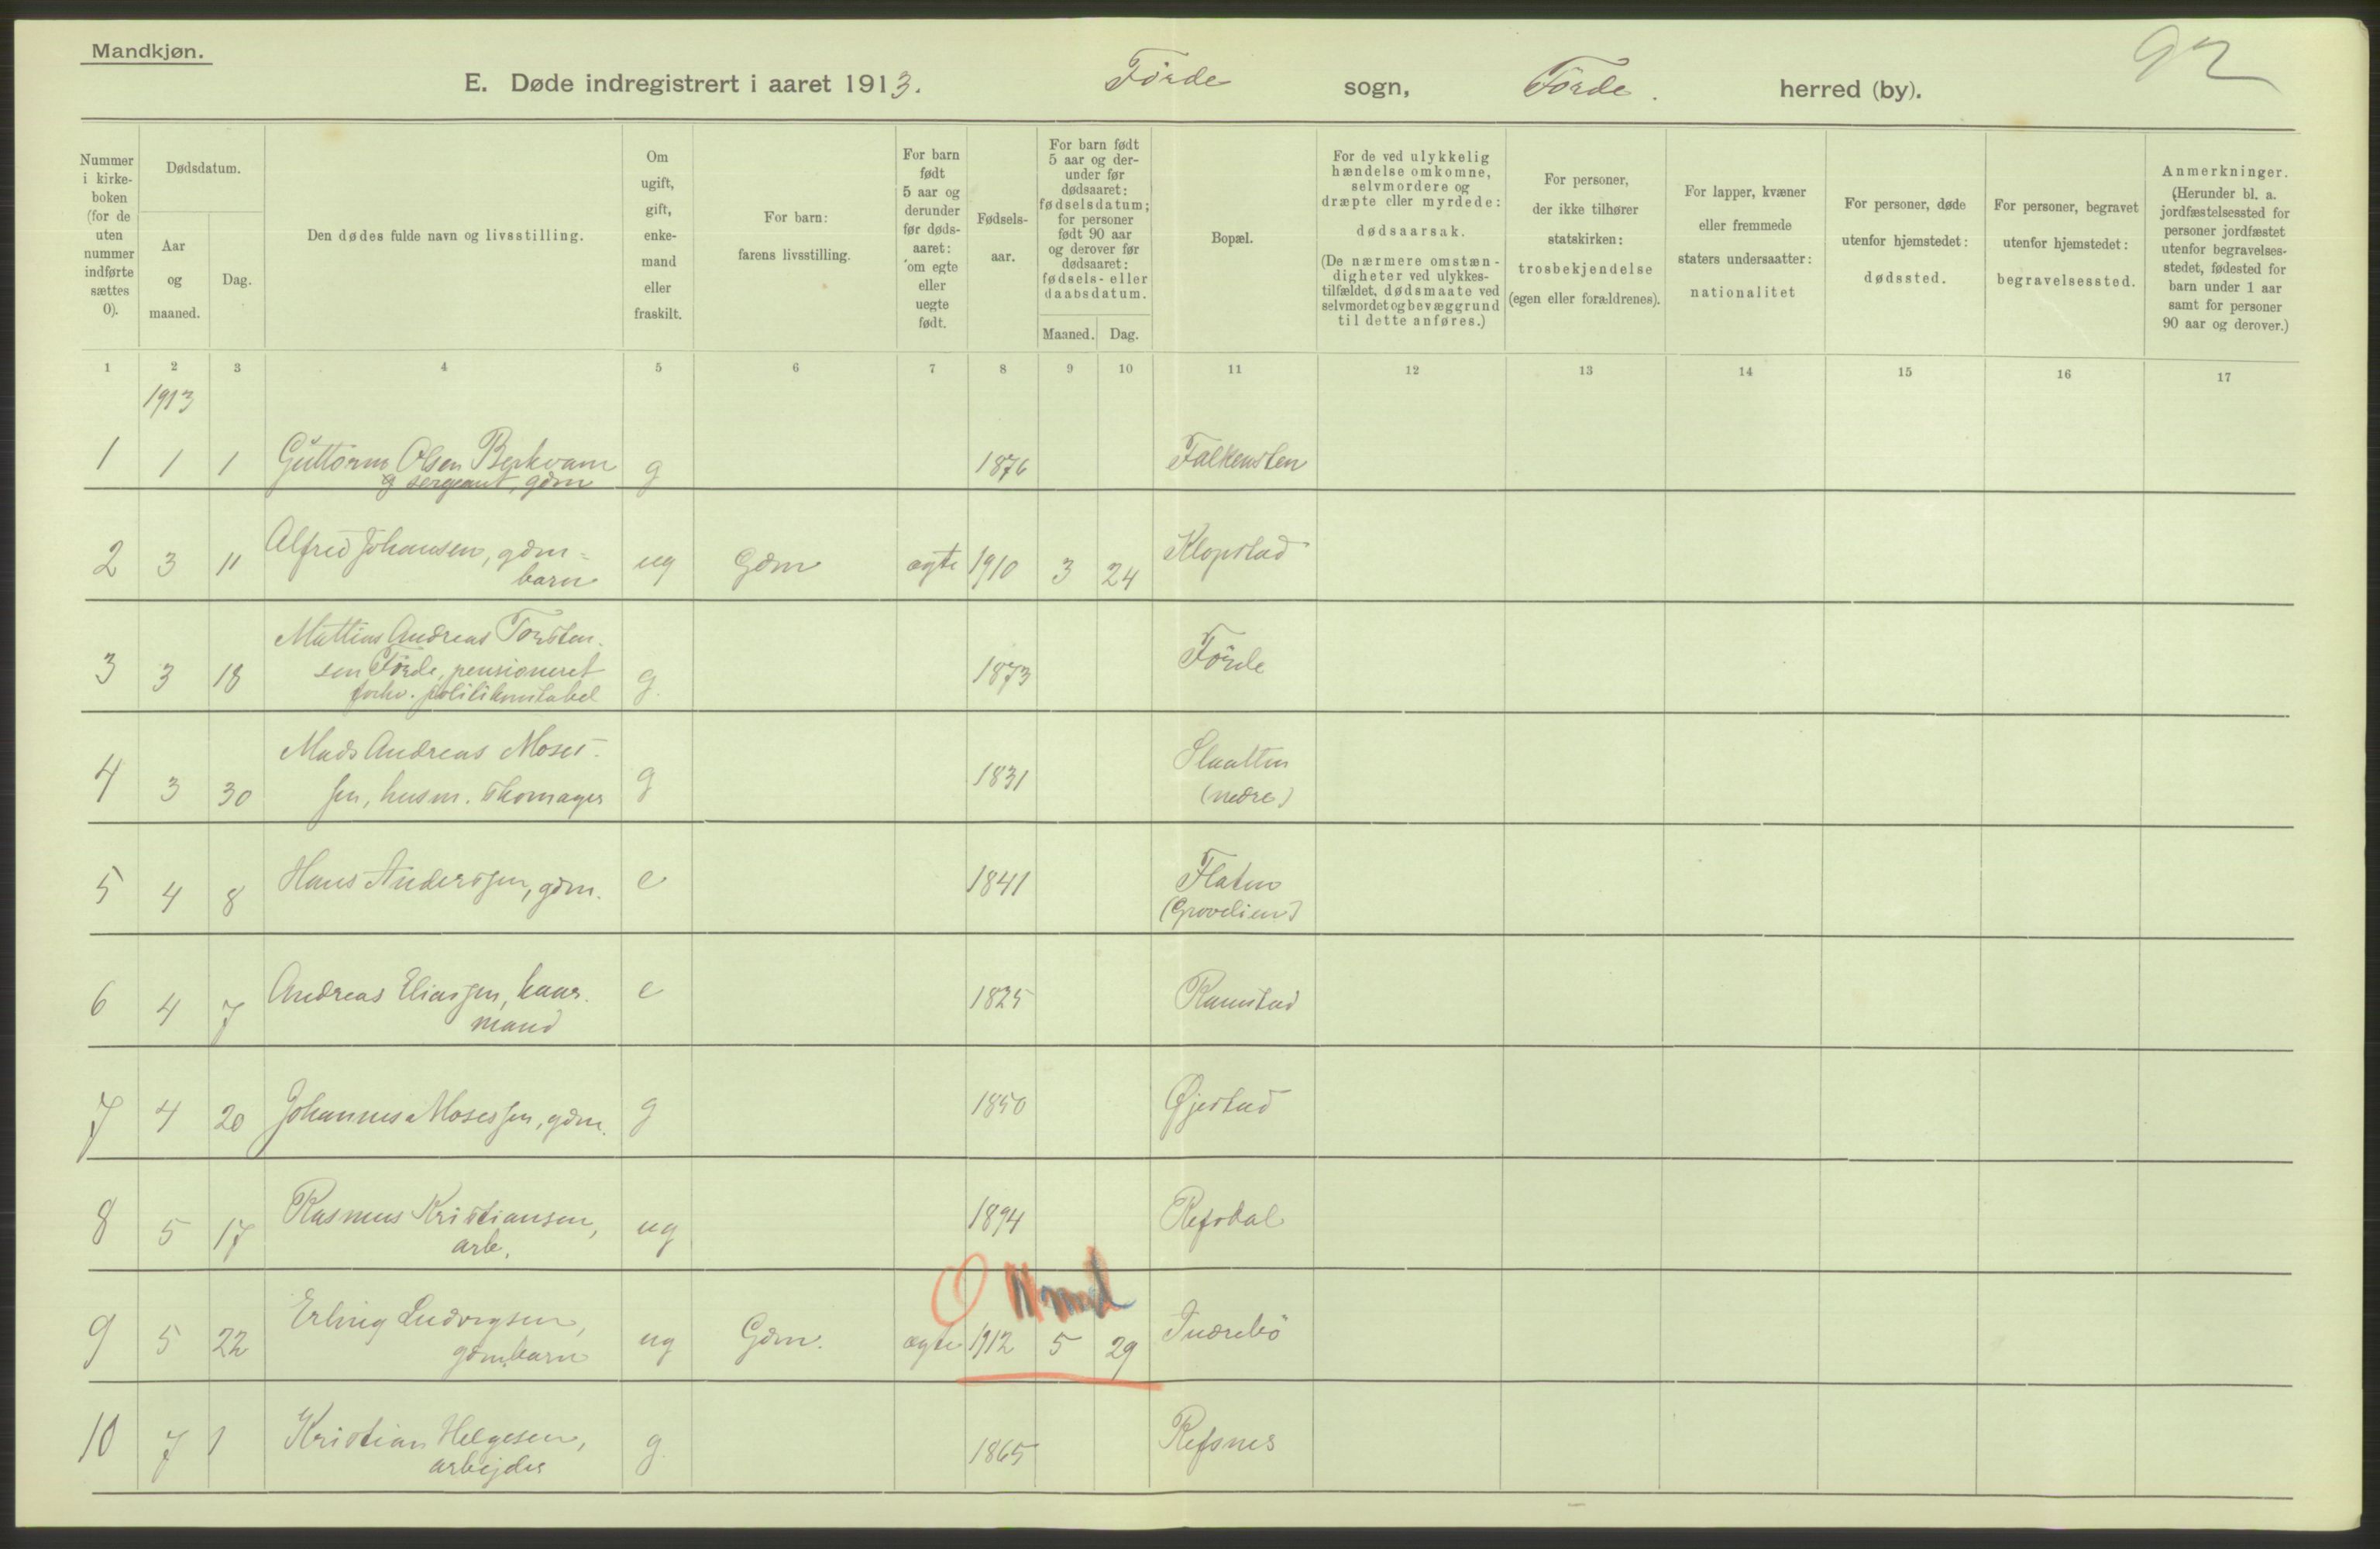 Mandkjøn.
92
E. Døde indregistrert i aaret 1913. Förde sogn, Förde. herred (by).
Nummer i kirke- boken (for de uten nummer indførte sættes 0).
Dødsdatum.
Aar og maaned.
Dag.
Den dødes fulde navn og livsstilling.
Om ugift, gift, enke- mand eller fraskilt.
For barn: farens livsstilling.
For barn født 5 aar og derunder før døds- aaret: om egte eller uegte født.
Fødsels- aar.
For barn født 5 aar og der- under før dødsaaret: fødselsdatum; for personer født 90 aar og derover før dødsaaret: fødsels- eller daabsdatum.
Maaned. Dag.
Bopæl.
For de ved ulykkelig hændelse omkomne, selvmordere og dræpte eller myrdede: dødsaarsak. (De nærmere omstæn- digheter ved ulykkes- tilfældet, dødsmaate ved selvmordet og bevæggrund til dette anføres.)
For personer, der ikke tilhører statskirken: trosbekjendelse (egen eller forældrenes).
For lapper, kvæner eller fremmede staters undersaatter: nationalitet
For personer, døde utenfor hjemstedet: dødssted.
For personer, begravet utenfor hjemstedet: begravelsessted.
Anmerkninger. (Herunder bl. a. jordfæstelsessted for personer jordfæstet utenfor begravelses- stedet, fødested for barn under 1 aar samt for personer 90 aar og derover.)
1 2 3 4 5 6 7 8 9 10 11 12 13 14 15 16 17
1913
1 1 1 Guttorm Olsen Berkvam g 1876 Falkensten
sergeant, gdm
2 3 11 Alfred Johansen, gdm- ug Gdm ægte 1910 3 24 Klopstad
barn
3 3 18 Mattias Andreas Torsten- g. 1873 Förde
sen Förde, pensioneret
forhv. politikonstabel
4 3 30 Mads Andreas Moses- g 1831 Slaatten
sen, husm. skomager (nedre)
5 4 8 Hans Anderssen, gdm. e 1841 Flaten
(Grovelien)
6 4 7 Andreas Eliassen, kaar- e 1825 Ramstad
mand
7 4 20 Johannes Mosessen, gdm. g 1850 Øjestad
8 5 17 Rasmus Kristiansen, ug 1894 Refsdal
arb.
0
9 5 22 Erling Ludvigsen, ug Gdm. ægte 1912 5 29 Indrebö
gdm.barn
10 7 1 Kristian Helgesen, g. 1865 Refsnes
arbejder